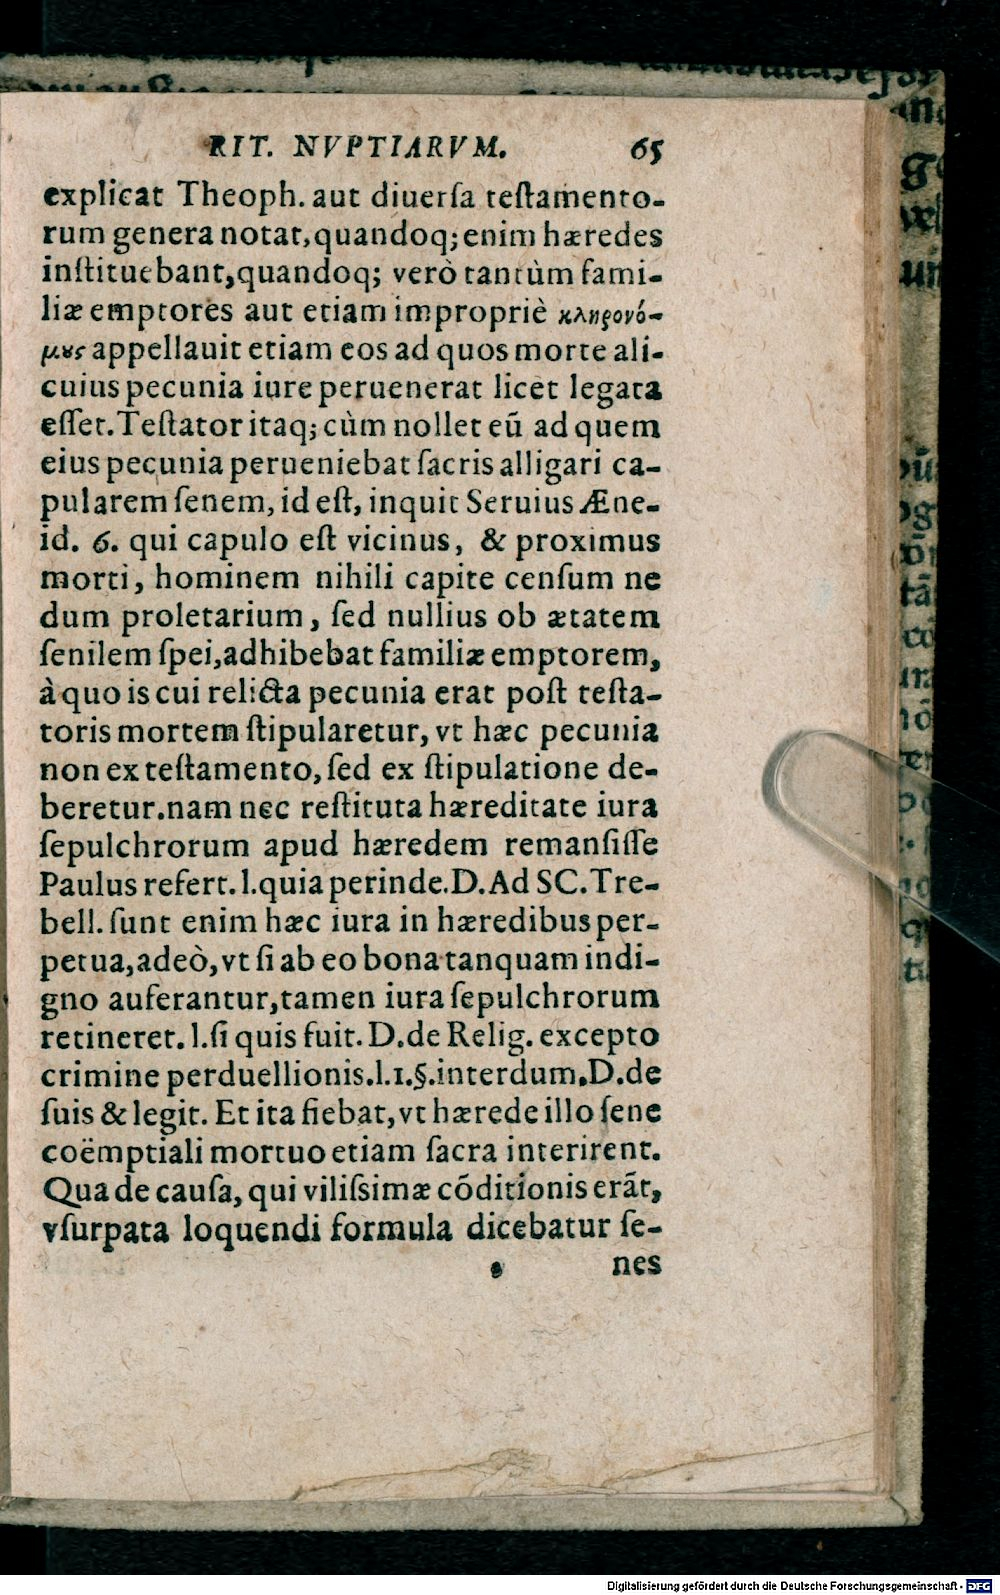 RIT. NVPTIARVM. 65
explicat Theoph. aut diuerſa teſtamento-
rum genera notat, quandoq; enim hæredes
inſtituebant, quandoq; verò tantùm fami-
liæ emptores aut etiam impropriè κληρονό-
μȣς appellauit etiam eos ad quos morte ali-
cuius pecunia iure peruenerat licet legata
eſſet. Teſtator itaq; cùm nollet eũ ad quem
eius pecunia perueniebat ſacris alligari ca-
pularem ſenem, id eſt, inquit Seruius Æne-
id. 6. qui capulo eſt vicinus, & proximus
morti, hominem nihili capite cenſum ne
dum proletarium, ſed nullius ob ætatem
ſenilem ſpei, adhibebat familiæ emptorem,
à quo is cui relicta pecunia erat poſt teſta-
toris mortem ſtipularetur, vt hæc pecunia
non ex teſtamento, ſed ex ſtipulatione de-
beretur. nam nec reſtituta hæreditate iura
ſepulchrorum apud hæredem remanſiſſe
Paulus refert. l. quia perinde. D. Ad SC. Tre-
bell. ſunt enim hæc iura in hæredibus per-
petua, adeò, vt ſi ab eo bona tanquam indi-
gno auferantur, tamen iura ſepulchrorum
retineret. l. ſi quis fuit. D. de Relig. excepto
crimine perduellionis. l. 1. §. interdum. D. de
ſuis & legit. Et ita fiebat, vt hærede illo ſene
coëmptiali mortuo etiam ſacra interirent.
Qua de cauſa, qui viliſsimæ cõditionis erãt,
vſurpata loquendi formula dicebatur ſe-
nes
Digitalisierung gefördert durch die Deutsche Forschungsgemeinschaft - DFG